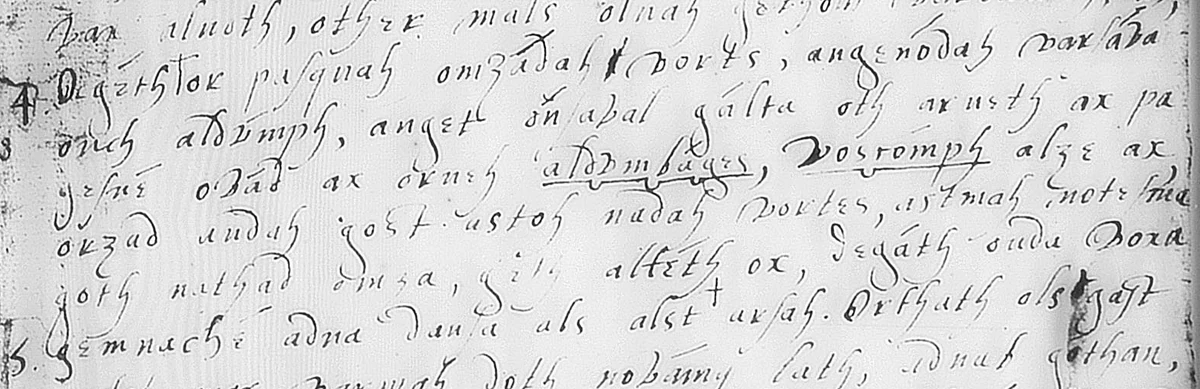 Vax alnoth, other mals olnah
4. Degéth†or pasquah omzádah vorts, angenódah varsáva-
onch aldvmph, anget ónsaval gálta oth arneth ax pa
gesné ovád ax orneh aldvmbáges, voscómph alze ax
orzad andah gost astoh nadah vortes, astmah notesma
goth nathad omza, geth altéth ox, degáth onda voxa
gemnaché adna dansa als alst arsah. Orthath ols gast
5. doth novámq lath, adnat gothan,